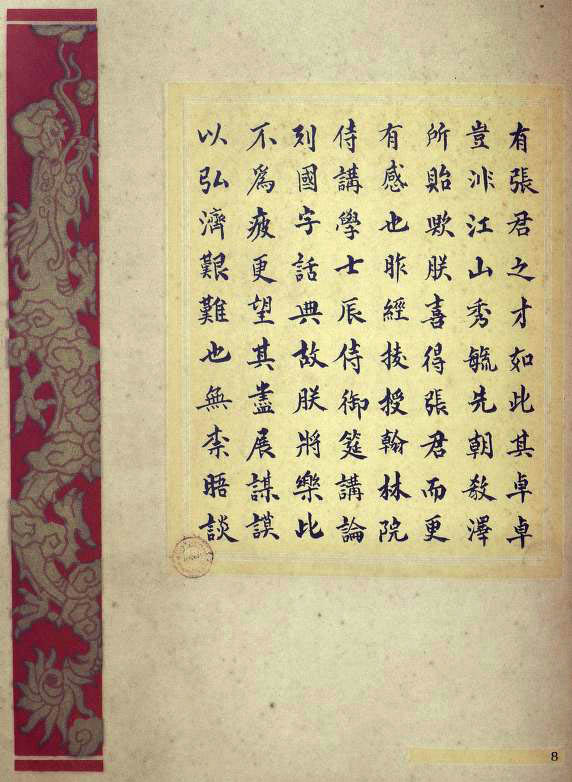 有張君之才如此其卓卓
豈非江山秀毓先朝教澤
所貽歟朕喜得張君而更
有感也昨經拔授翰林院
侍講學士辰侍御筵講論
列國字話典故朕將樂此
不爲疲更望其盡展謀謨
以弘濟艱難也無柰晤談
8